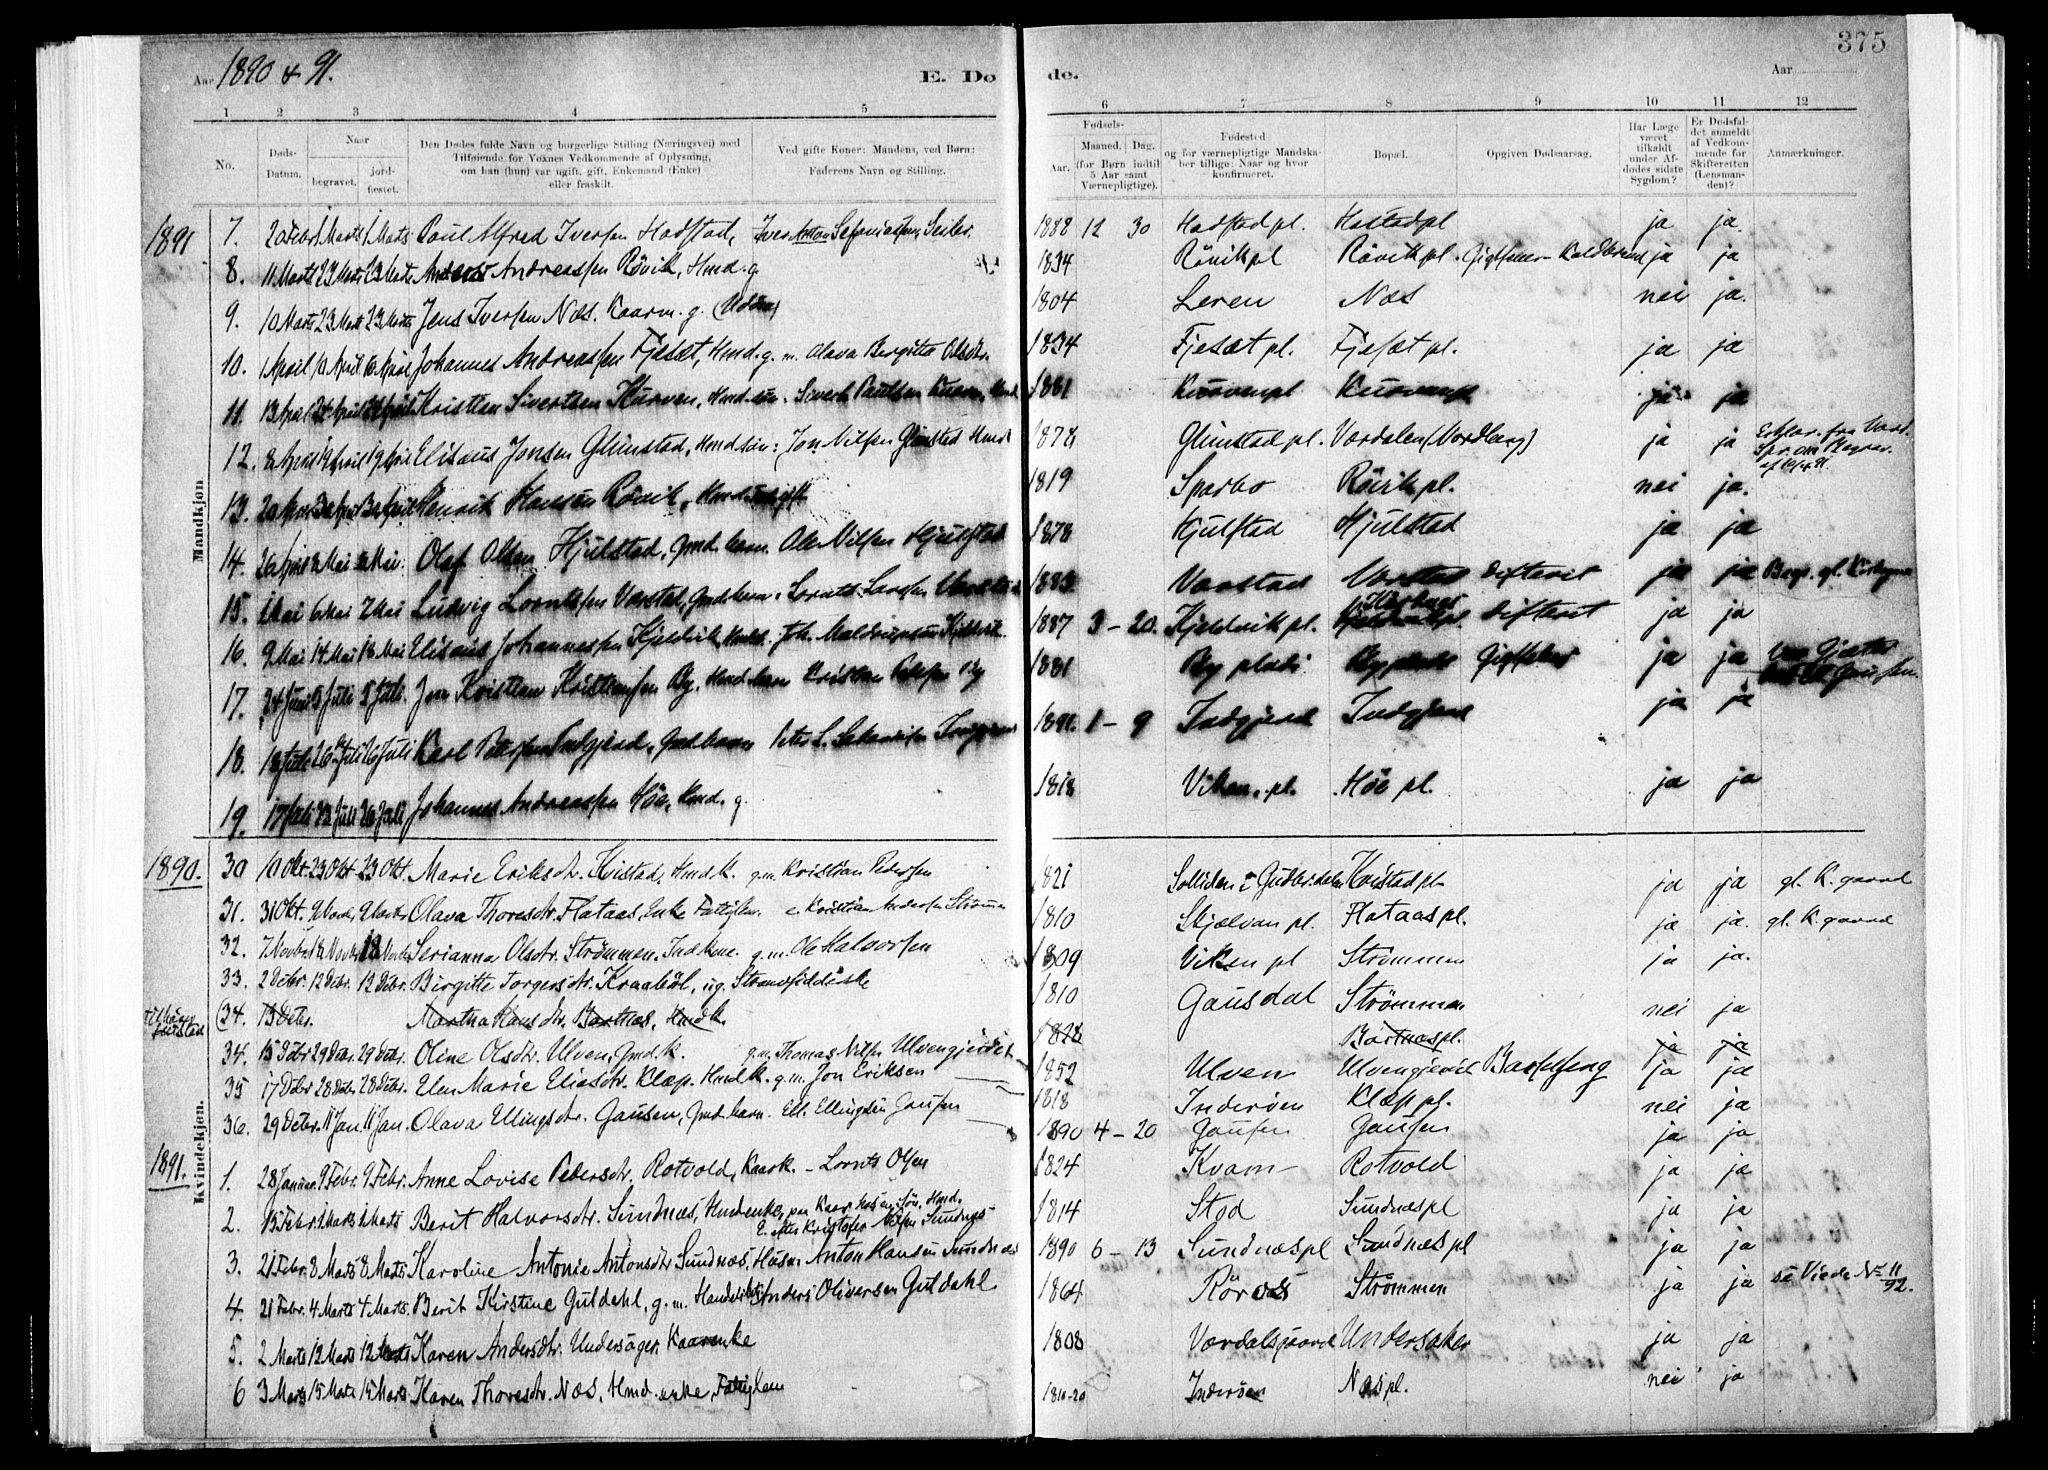 375
Aar 1890 & 91. E. Dø de. Aar
1 2 3 4 5 6 7 8 9 10 11 12
No. Døds-Datum. Naar begravet. jordfæstet. Den Dødes fulde Navn og borgerlige Stilling (Næringsvei) med Tilføiende for Voxnes Vedkommende af Oplysning, om han (hun) var ugift, gift, Enkemand (Enke) eller fraskilt. Ved gifte Koner: Mandens, ved Børn: Faderens Navn og Stilling. Fødsels- Aar. Maaned. Dag. (for Børn indtil 5 Aar samt Værnepligtige). Fødested og for værnepligtige Mandskaber tillige: Naar og hvor konfirmeret. Bopæl. Opgiven Dødsaarsag. Har Læge været tilkaldt under Afdødes sidste Sygdom? Er Dødsfaldet anmeldt af Vedkommende for Skifteretten (Lensmanden)? Anmærkninger.
Mandkjøn
1891 7. 20 Febr 1 Marts 1 Marts Paul Alfred Iversen Hadstad, Iver Anton 1888 12 30 Hadstad pl. Hastad pl ja ja.
8. 11 Marts 23 Marts 23 Marts Andreassen Rövik, Hmd. g. 1834 Rövik pl Rövik pl. ja ja
9. 10 Marts 23 Marts 23 Marts Jens Iversen Næs. Kaarm. g. 1804 Leren Næs nei ja.
10. 1 April 10 April 10 April Johannes Andreassen Fjesæt, Hmd. g. m. Olava Bergitta Olsdtr. 1834 Fjesæt pl. Fjesæt pl. ja ja
11. 13 April 24 April 24 April Kristian Sivertsen Kurven, Hmd. sön. Sivert Paulsen 1881 ja ja
12. 8 April 19 April 19 April Elisæus Jonsen Glimstad, Hmd sön: Jon Nilsen Glimstad Hmd 1874 Glimstad pl. Værdalen (Nordberg) ja ja
13. 20 April Henrik Hansen Rövik, Hmd. gift 1819 Sparbo Rövik pl. nei ja.
14. 26 April Mai Mai. Olaf Olsen Hjulstad, Gmd. barn. Ole Nilsen Hjulstad 1878 Hjulstad Hjulstad ja ja
15. 1 Mai 6 Mai 7 Mai Ludvig Lorntssen Varstad, Gmd. barn. Lornts Larssen Varstad 1883 Varstad Varstad Difterit ja ja
16. 9 Mai 14 Mai Mai Elisæus Johannessen Kjeldvik, Joh. 1887 3 - 20. Kjeldvik pl. Difterit ja ja
17. 24 Juni 5 Juli 5 Juli. Jon Kristian Kristiansen By, Hmd. barn Kristian By 1881 By plads By plads ja ja
18. Juli 26 Juli 26 Juli Karl Petersen Indgjerd, Gmd. barn Peter L. 1891. 1 - 9 Indgjerd Indgjerd ja ja
19. 17 Juli Juli 26 Juli Johannes Andreassen Höe, Hmd. g. 1818 Viken. pl. Höe pl. ja ja
Kvindekjøn.
1890. 30 10 Okt. 23 Okt 23 Okt. Marie Eriksdtr. Kvistad, Hmd k. g. m. Kristian Pedersen 1821 Solliden i Gudbr. dalen Kvistad pl. ja ja gl. K. gaard
31. 31 Okt. 9 Novbr 9 Novbr Olava Thoresdtr. Flataas, Enke Fattiglem. e Kristian Andersen Strömm 1810 Skjelvan pl. Flataas pl. ja ja. gl. K. gaard
32. 7 Novbr 18 Novbr 18 Novbr Serianna Olsdtr. Strömmen. g. m. Ole Halvorsen 1809 Viken pl Strömmen ja ja.
33. 2 Debr. 12 Debr. 12 Debr. Birgitte Torgersdtr. Kraaböl, ug. Strandsidderske 1810 Gausdal Strömmen nei ja
(34. 13 Debr. Martha Hansdtr. Bartnæs, Hmd k. 1828 Bartnæs pl. ja ja
34. 15 Debr 29 Debr. 29 Debr. Oline Olsdtr. Ulven, Gmd. k. g. m. Thomas Nilsen Ulvengjerdet 1852 Ulven Ulvengjerdet Barselseng ja ja
35 17 Debr 28 Debr. 28 Debr. Elen Marie Eliasdtr. Klæp. Hmd k. g. m. Jon Eriksen 1818 Inderøen Klæp pl. nei ja
36. 29 Debr. 11 Jan. 11 Jan. Olava Ellingsdtr. Gausen, Gmd. barn. Ell. Ellingsen Gausen 1890 4 - 20 Gausen Gausen ja ja
1891. 1. 28 Januar 9 Febr. 9 Febr. Anne Lovise Pedersdtr. Rotvold, Kaark. - Lornts Olsen 1824 Kvam Rotvold ja ja
2. 15 Febr 1 Marts 1 Marts Berit Halvorsdtr. Sundnæs, Hmdenke, paa Kaar hos en Sön, Hmd.
E. efter Kristofer Nilsen Sundnæs 1814 Stod Sundnæs pl ja ja
3. 21 Febr. 8 Marts 8 Marts Karoline Antonie Antonsdtr Sundnæs, Husm. Anton Hansen Sundnæs 1890 6 - 13 Sundnæs pl Sundnæs pl ja ja
4. 21 Febr. 4 Marts 4 Marts. Berit Kirstine Guldahl, g. m. Anders Oliversen Guldahl 1864 Röraas Strömmen ja ja se Viede No 11/92.
5. 2 Marts 12 Marts 12 Marts Karen Andersdtr. Undersager. Kaarenke 1808 Værdalsjaard Undersaker ja ja
6 3 Marts 15 Marts 15 Marts Karen Thoresdtr. Næs, Hmd. enke, Fattiglem 1810-20 Inderøen Næs pl. nei ja